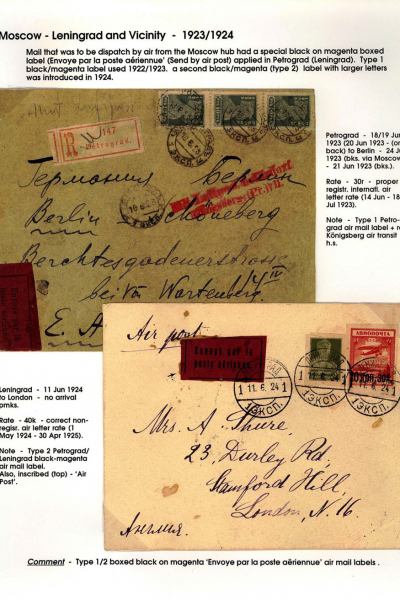 Moscow - Leningrad and Vicinity - 1923/1924
Mail that was to be dispatch by air from the Moscow hub had a special black on magenta boxed
label (Envoye par la poste aëriennue' (Send by air post) applied in Petrograd (Leningrad). Type 1
black/magenta label used 1922/1923. a second black/magenta (type 2) label with larger letters
was introduced in 1924.
R
147
Petrograd.
Petrograd - 18/19 Jun
1923 (20 Jun 1923 - (on
back) to Berlin - 24 Jun
1923 (bks. via Moscow
- 21 Jun 1923 (bks.)
Rate - 30r - proper
registr. internatl. air
letter rate (14 Jun - 18
Jul 1923)
Note - Type 1 Petro-
grad air mail label + re
Königsberg air transit
h.s.
Германия Берлин
Berlin Schöneberg
Berchtesgadenerstrasse
bei von Wartenberg
E. A
Air post
Envoyé par la
poste aérienne.
АВИОПОЧТА
1 11.6.24 1
ЭКСП.
1 11.6.24 1
ЭКСП.
Mrs. A. Shure,
23, Durley Rd,
Stamford Hill,
London, N. 16
Англия.
Leningrad - 11 Jun 1924
to London - no arrival
pmks.
Rate - 40k - correct non-
registr. air letter rate (1
May 1924 - 30 Apr 1925).
Note - Type 2 Petrograd/
Leningrad black-magenta
air mail label.
Also, inscribed (top) - 'Air
Post'.
Comment - Type 1/2 boxed black on magenta 'Envoye par la poste aëriennue' air mail labels .